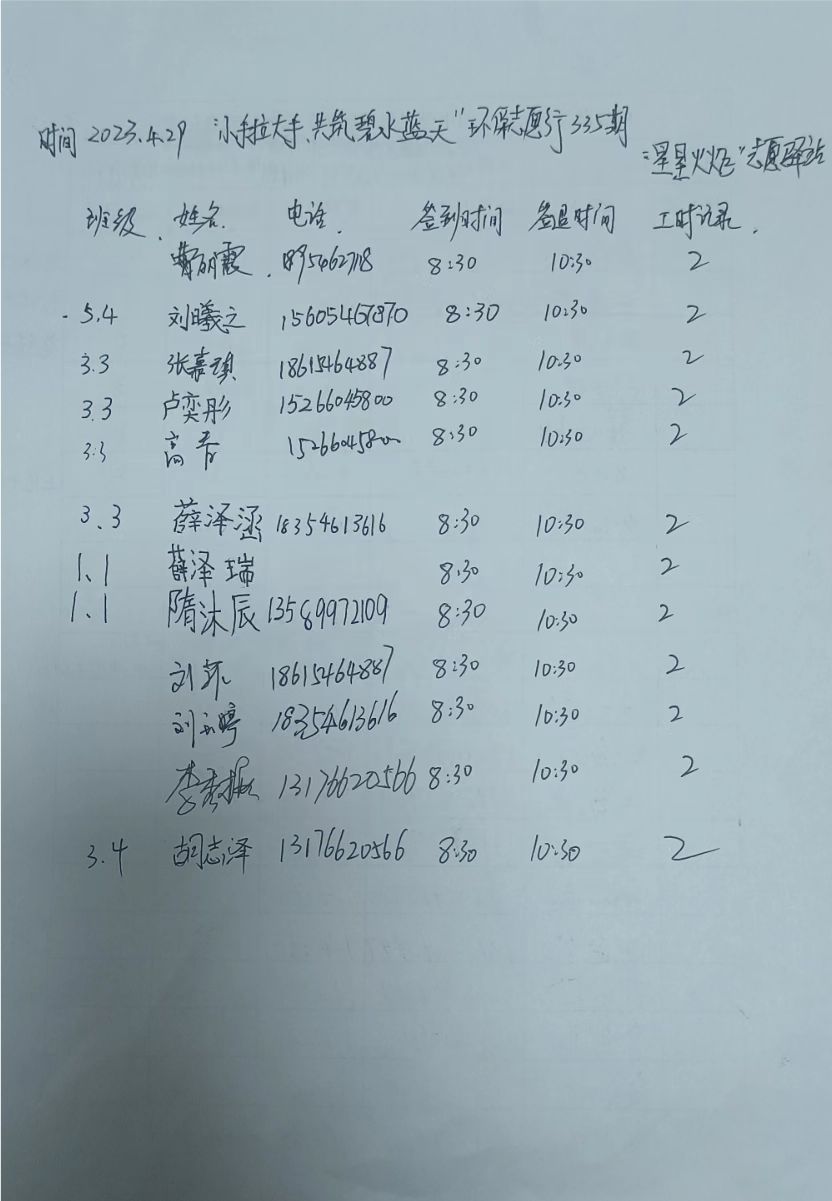 时间 2023.4.29 "小手拉大手、共筑碧水蓝天"环保志愿行335期
"星星火炬"志愿驿站
班级、 姓名. 电话. 签到时间 签退时间 工时记录.
8:30 10:30 2
5.4 刘曦之 15605467870 8:30 10:30 2
3.3 张嘉琪 18615464887 8:30 10:30 2
3.3 卢奕彤 15266045800 8:30 10:30 2
3.3 15266045800 8:30 10:30 2
3.3 薛泽涵 18354613616 8:30 10:30 2
1、1 薛泽瑞 8:30 10:30 2
1、1 隋沐辰 13589972109 8:30 10:30 2
刘 18615464887 8:30 10:30 2
刘 婷 18354613616 8:30 10:30 2
李秀振 13176620566 8:30 10:30 2
3.4 胡志泽 13176620566 8:30 10:30 2